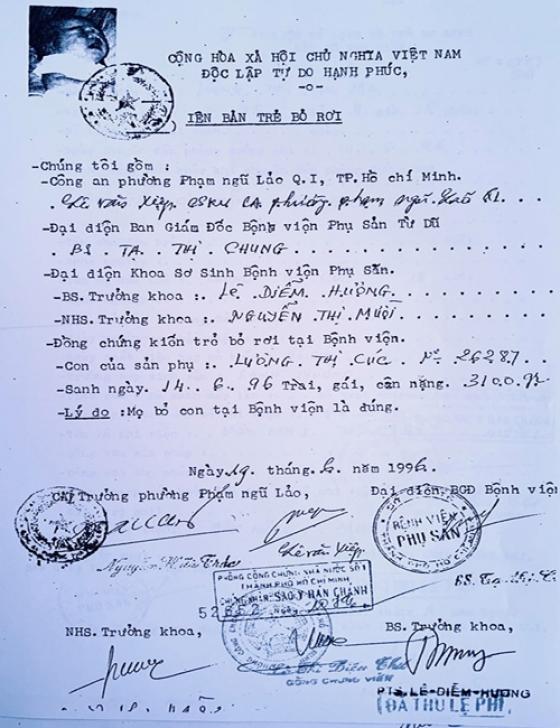 CỘNG HÒA XÃ HỘI CHỦ NGHĨA VIỆT NAM
ĐỘC LẬP TỰ DO HẠNH PHÚC,
-o-
IÊN BẢN TRẺ BỎ RƠI
-Chúng tôi gồm :
-Công an phường Phạm ngũ Lảo Q.I, TP.Hồ chí Minh.
Lê văn Xiệp. CSKV CA phường phạm ngũ Lão Q1.
-Đại diện Ban Giám Đốc Bệnh viện Phụ Sản Từ Dũ
. BS . TẠ . THỊ . CHUNG
-Đại diện Khoa Sơ Sinh Bệnh viện Phụ Sản.
-BS.Trưởng khoa :. LÊ . DIỄM . HƯƠNG
-NHS.Trưởng khoa :. NGUYỄN THỊ MUỘI
-Đồng chứng kiến trẻ bỏ rơi tại Bệnh viện.
-Con của sản phụ :. LƯƠNG . THỊ CÚC . Nº 26287
-Sanh ngày. 14. 6. 96 Trai, gái, cân nặng. 3100.gr
-Lý do :Mẹ bỏ con tại Bệnh viện là đúng.
Ngày.19. tháng.6. năm 1996.
CA Trưởng phường Phạm ngũ Lảo, Đại diện BGĐ Bệnh viện
BỆNH VIỆN
PHỤ SẢN
Lê văn Xiệp
PHÒNG CÔNG CHỨNG NHÀ NƯỚC SỐ 1
THÀNH PHỐ HỒ CHÍ MINH
SAO Y BẢN CHÁNH
BS. Tạ Thị C
NHS. Trưởng khoa, BS. Trưởng khoa,
CÔNG CHỨNG VIÊN
PTS LÊ-DIỄM-HƯƠNG
(ĐÃ THU LỆ PHÍ)